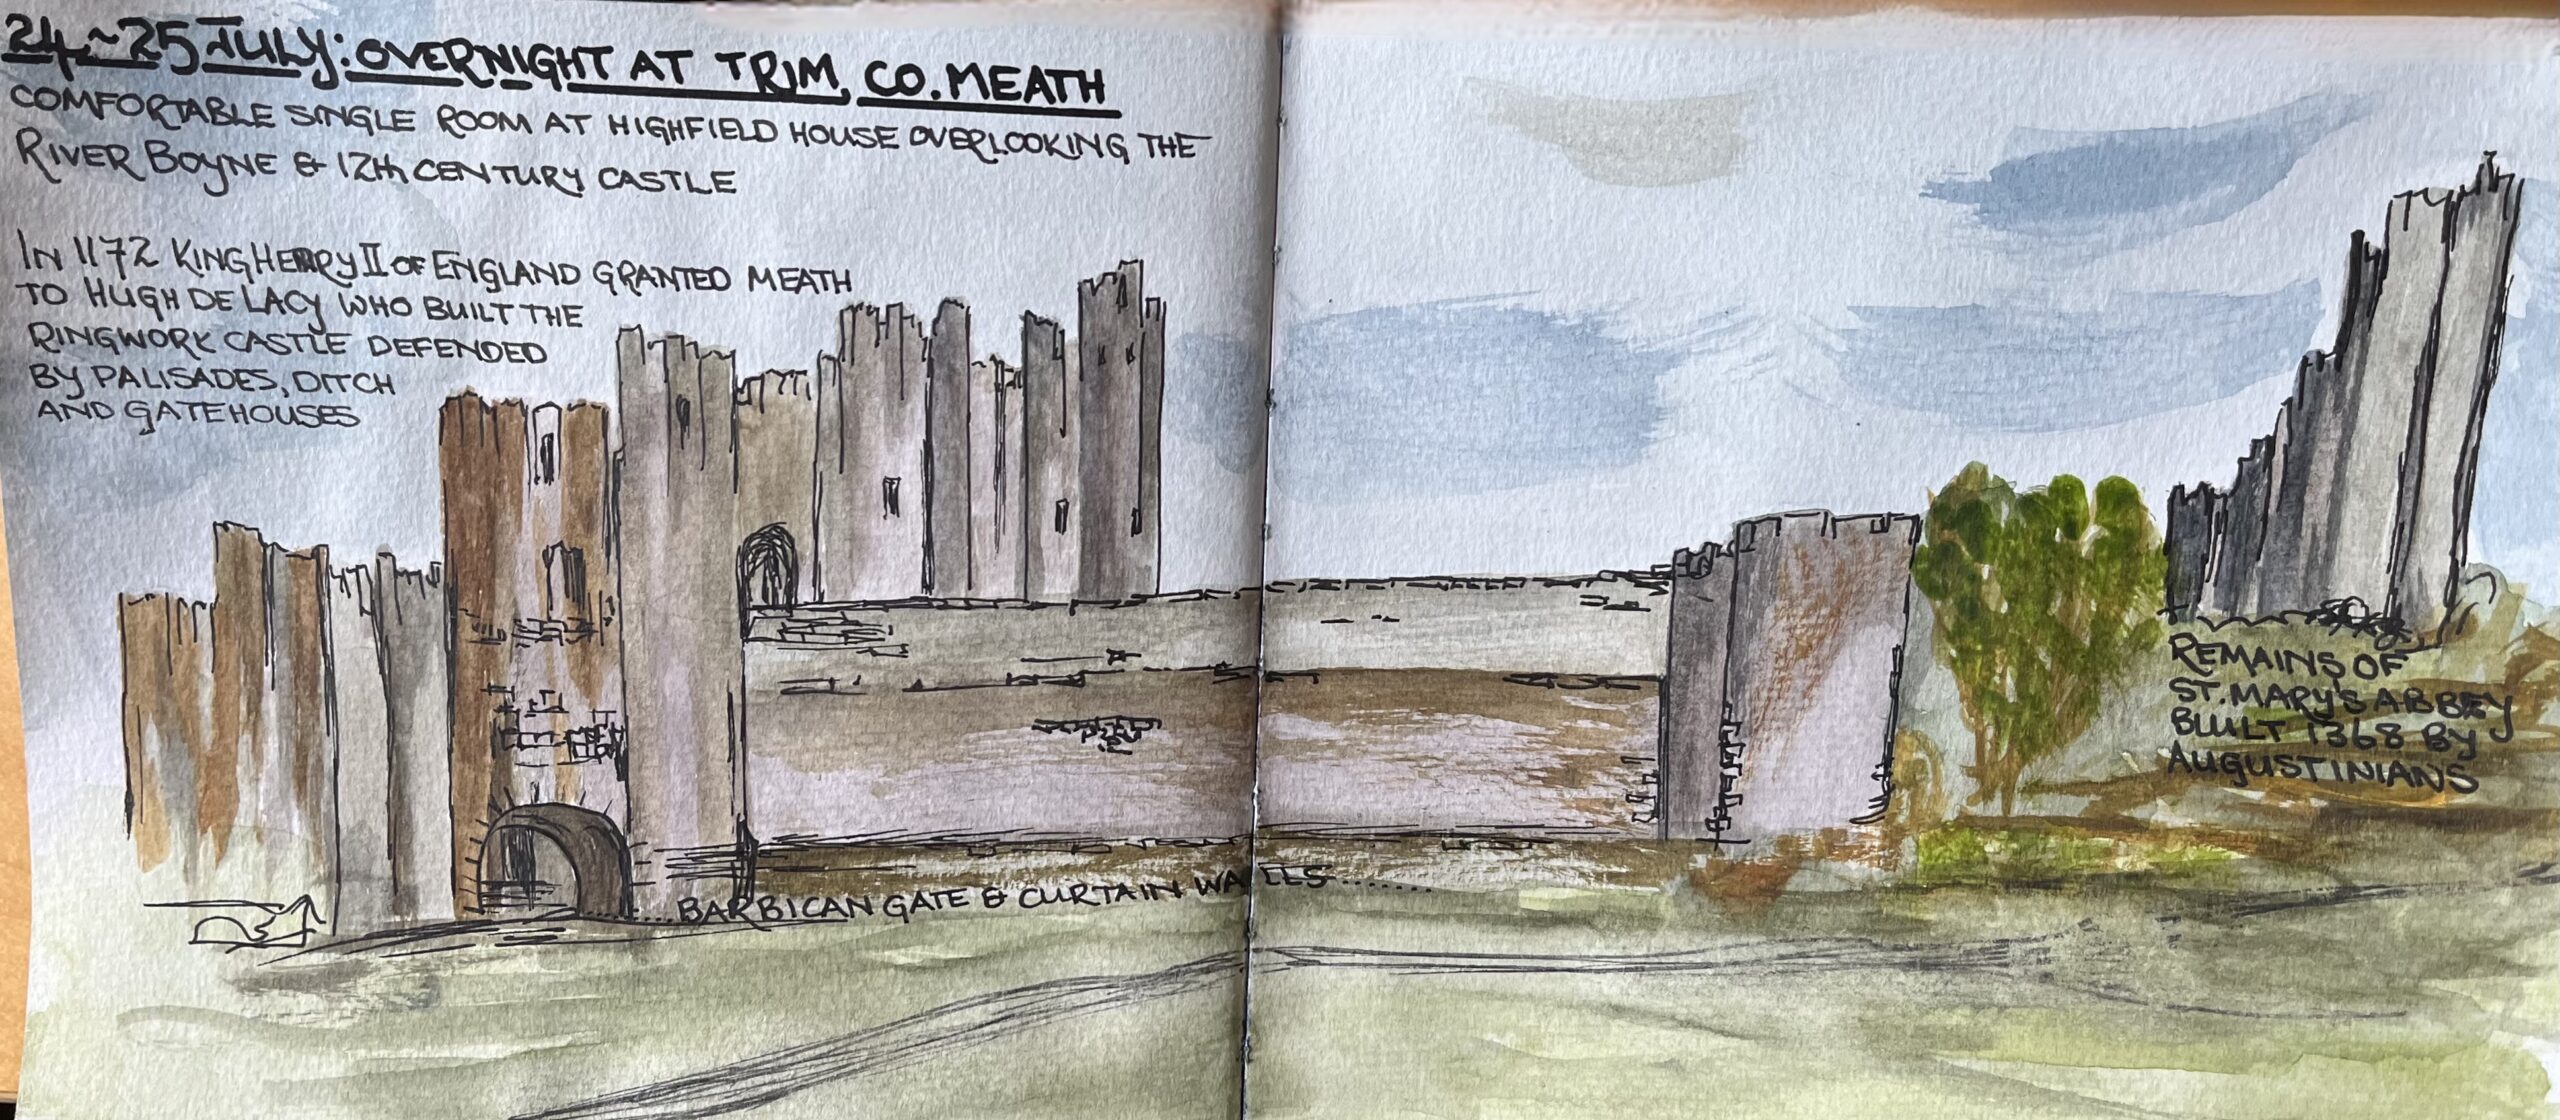 24~25 JULY: OVERNIGHT AT TRIM, CO. MEATH
COMFORTABLE SINGLE ROOM AT HIGHFIELD HOUSE OVERLOOKING THE
RIVER BOYNE & 12th CENTURY CASTLE
IN 1172 KING HENRY II OF ENGLAND GRANTED MEATH
TO HUGH DE LACY WHO BUILT THE
RINGWORK CASTLE DEFENDED
BY PALISADES, DITCH
AND GATEHOUSES
REMAINS OF
ST. MARY'S ABBEY
BUILT 1368 BY
AUGUSTINIANS
......BARBICAN GATE & CURTAIN WALLS.......